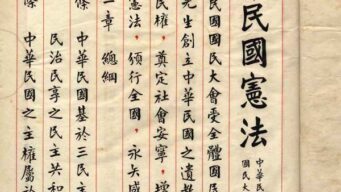 民國憲法
中華民
國民大
民國國民大會受全體國民
先生創立中華民國之遺
民權，奠定社會安寧，增
憲法，頒行全國，永矢咸
一章　總綱
條　中華民國基於三民主
民治民享之民主共和
條　中華民國之主權屬於